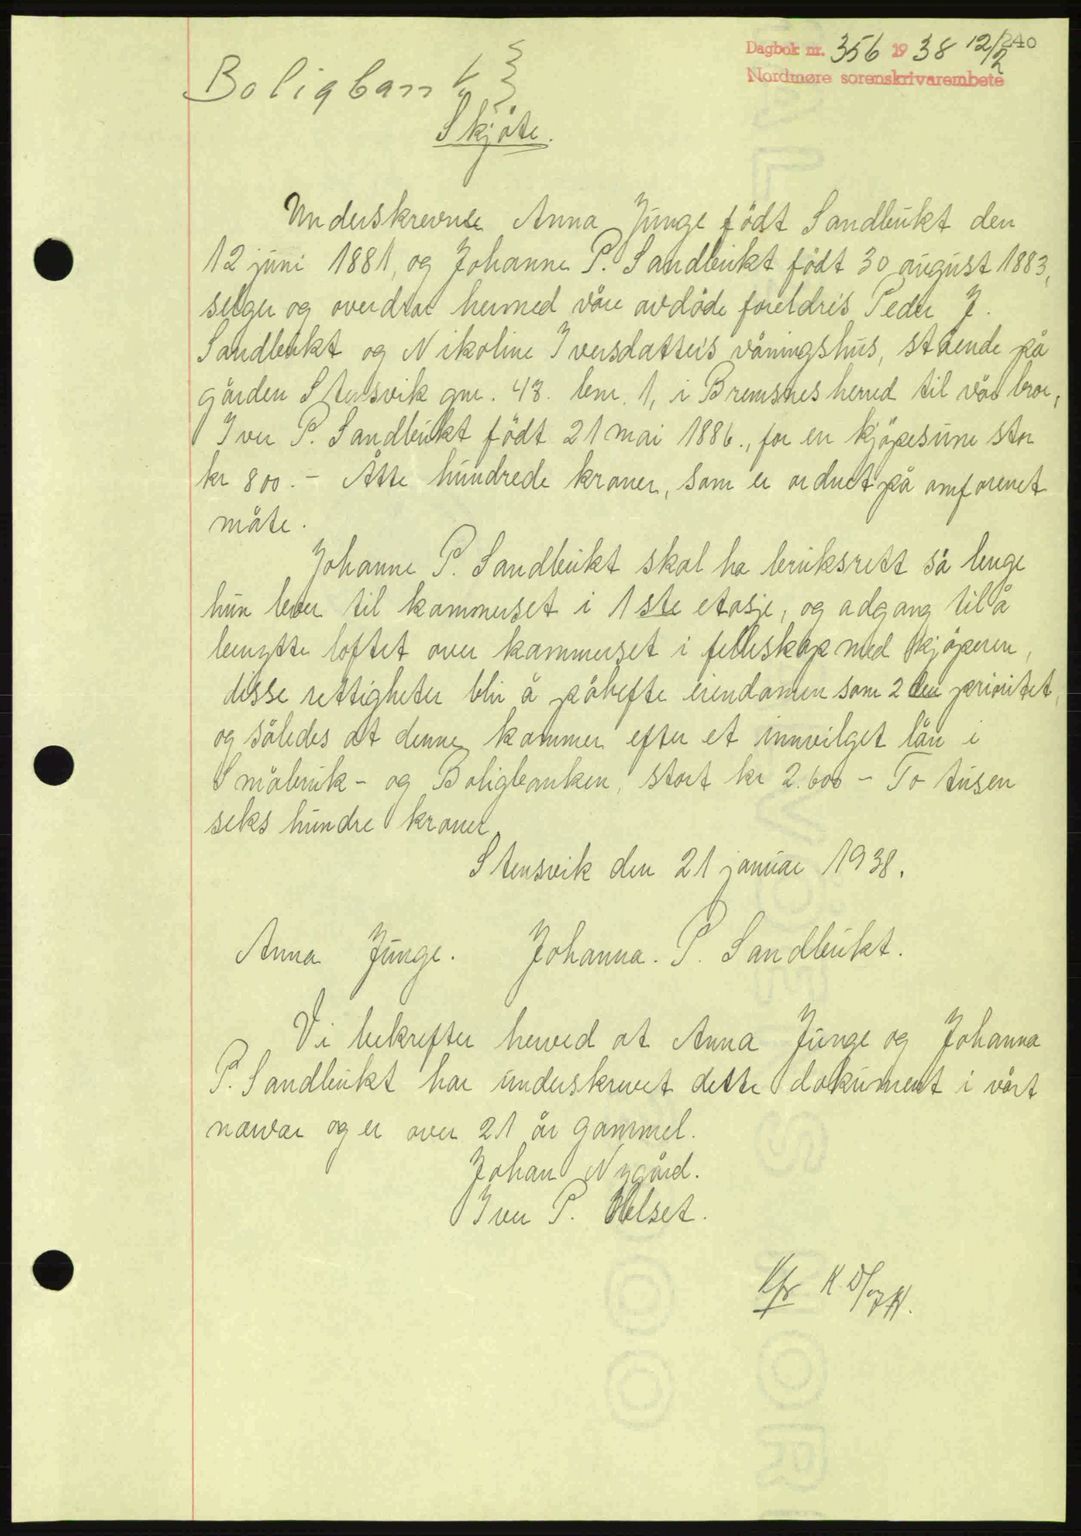 240
Dagbok nr. 356 1938 12/2
Nordmøre sorenskrivarembete
Boligbank
Skjöte.
Underskrevne Anna Junge födt Sandbukt den
12 juni 1881, og Johanne P. Sandbukt födt 30 august 1883,
selger og overdrar hermed våre avdöde foreldres Peder J.
Sandbukt og Nikoline Iversdatters våningshus, stående på
gården Stensvik gnr. 43. bnr. 1, i Bremsnes herred til vår bror,
Iver P. Sandbukt födt 21 mai 1886., for en kjöpesum stor
kr 800.- Åtte hundrede kroner, som er ordnet på omforenet
måte.
Johanne P. Sandbukt skal ha bruksrett så lenge
hun lever til kammerset i 1ste etasje, og adgang til å
benytte loftet over kammerset i felleskap med kjöperen,
disse rettigheter blir å påhefte eiendomen som 2den prioritet,
og således at denne kommer efter et innvilget lån i
Småbruk- og Boligbanken, stort kr 2.600 - To tusen
seks hundre kroner.
Stensvik den 21 januar 1938.
Anna Junge. Johanna. P. Sandbukt.
Vi bekrefter herved at Anna Junge og Johanna
P. Sandbukt har underskrevet dette dokument i vårt
nærvær og er over 21 år gammel.
Johan Nygård.
Iver P. Helset.